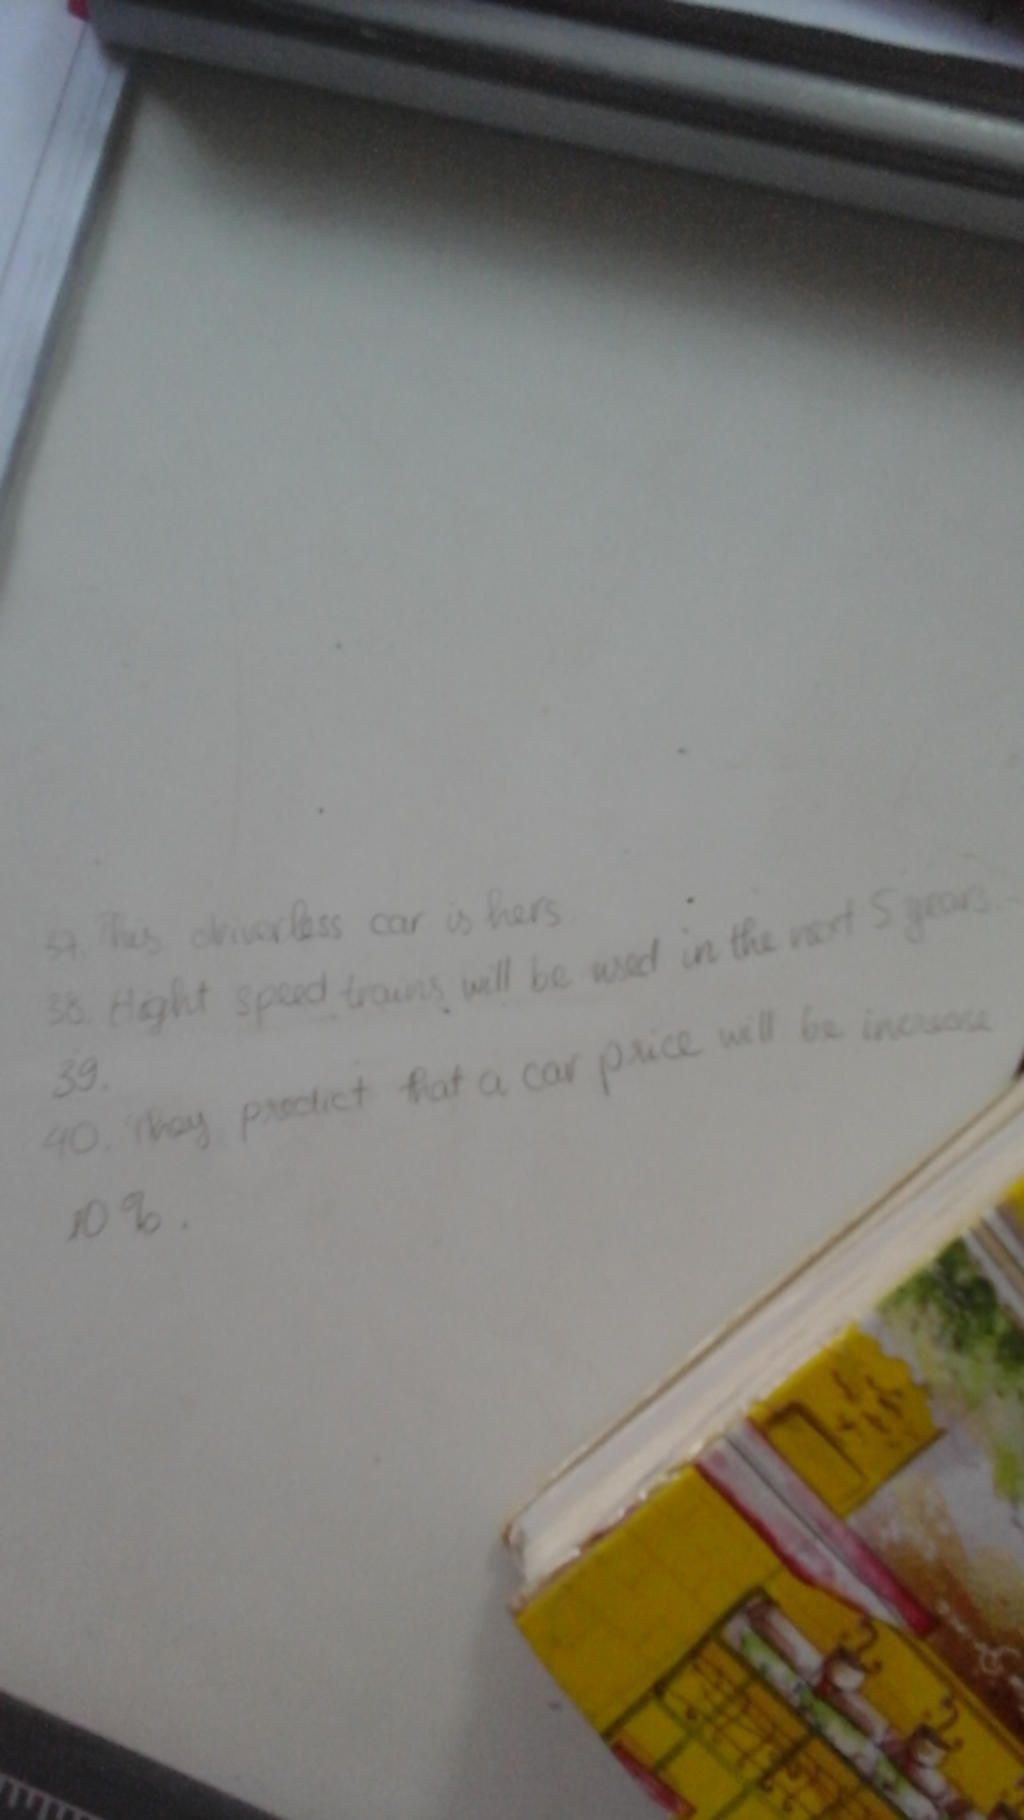 37. This driverless car is hers
38. Hight speed trains will be used in the next 5 years.
39.
40. They predict that a car price will be increase
10%.